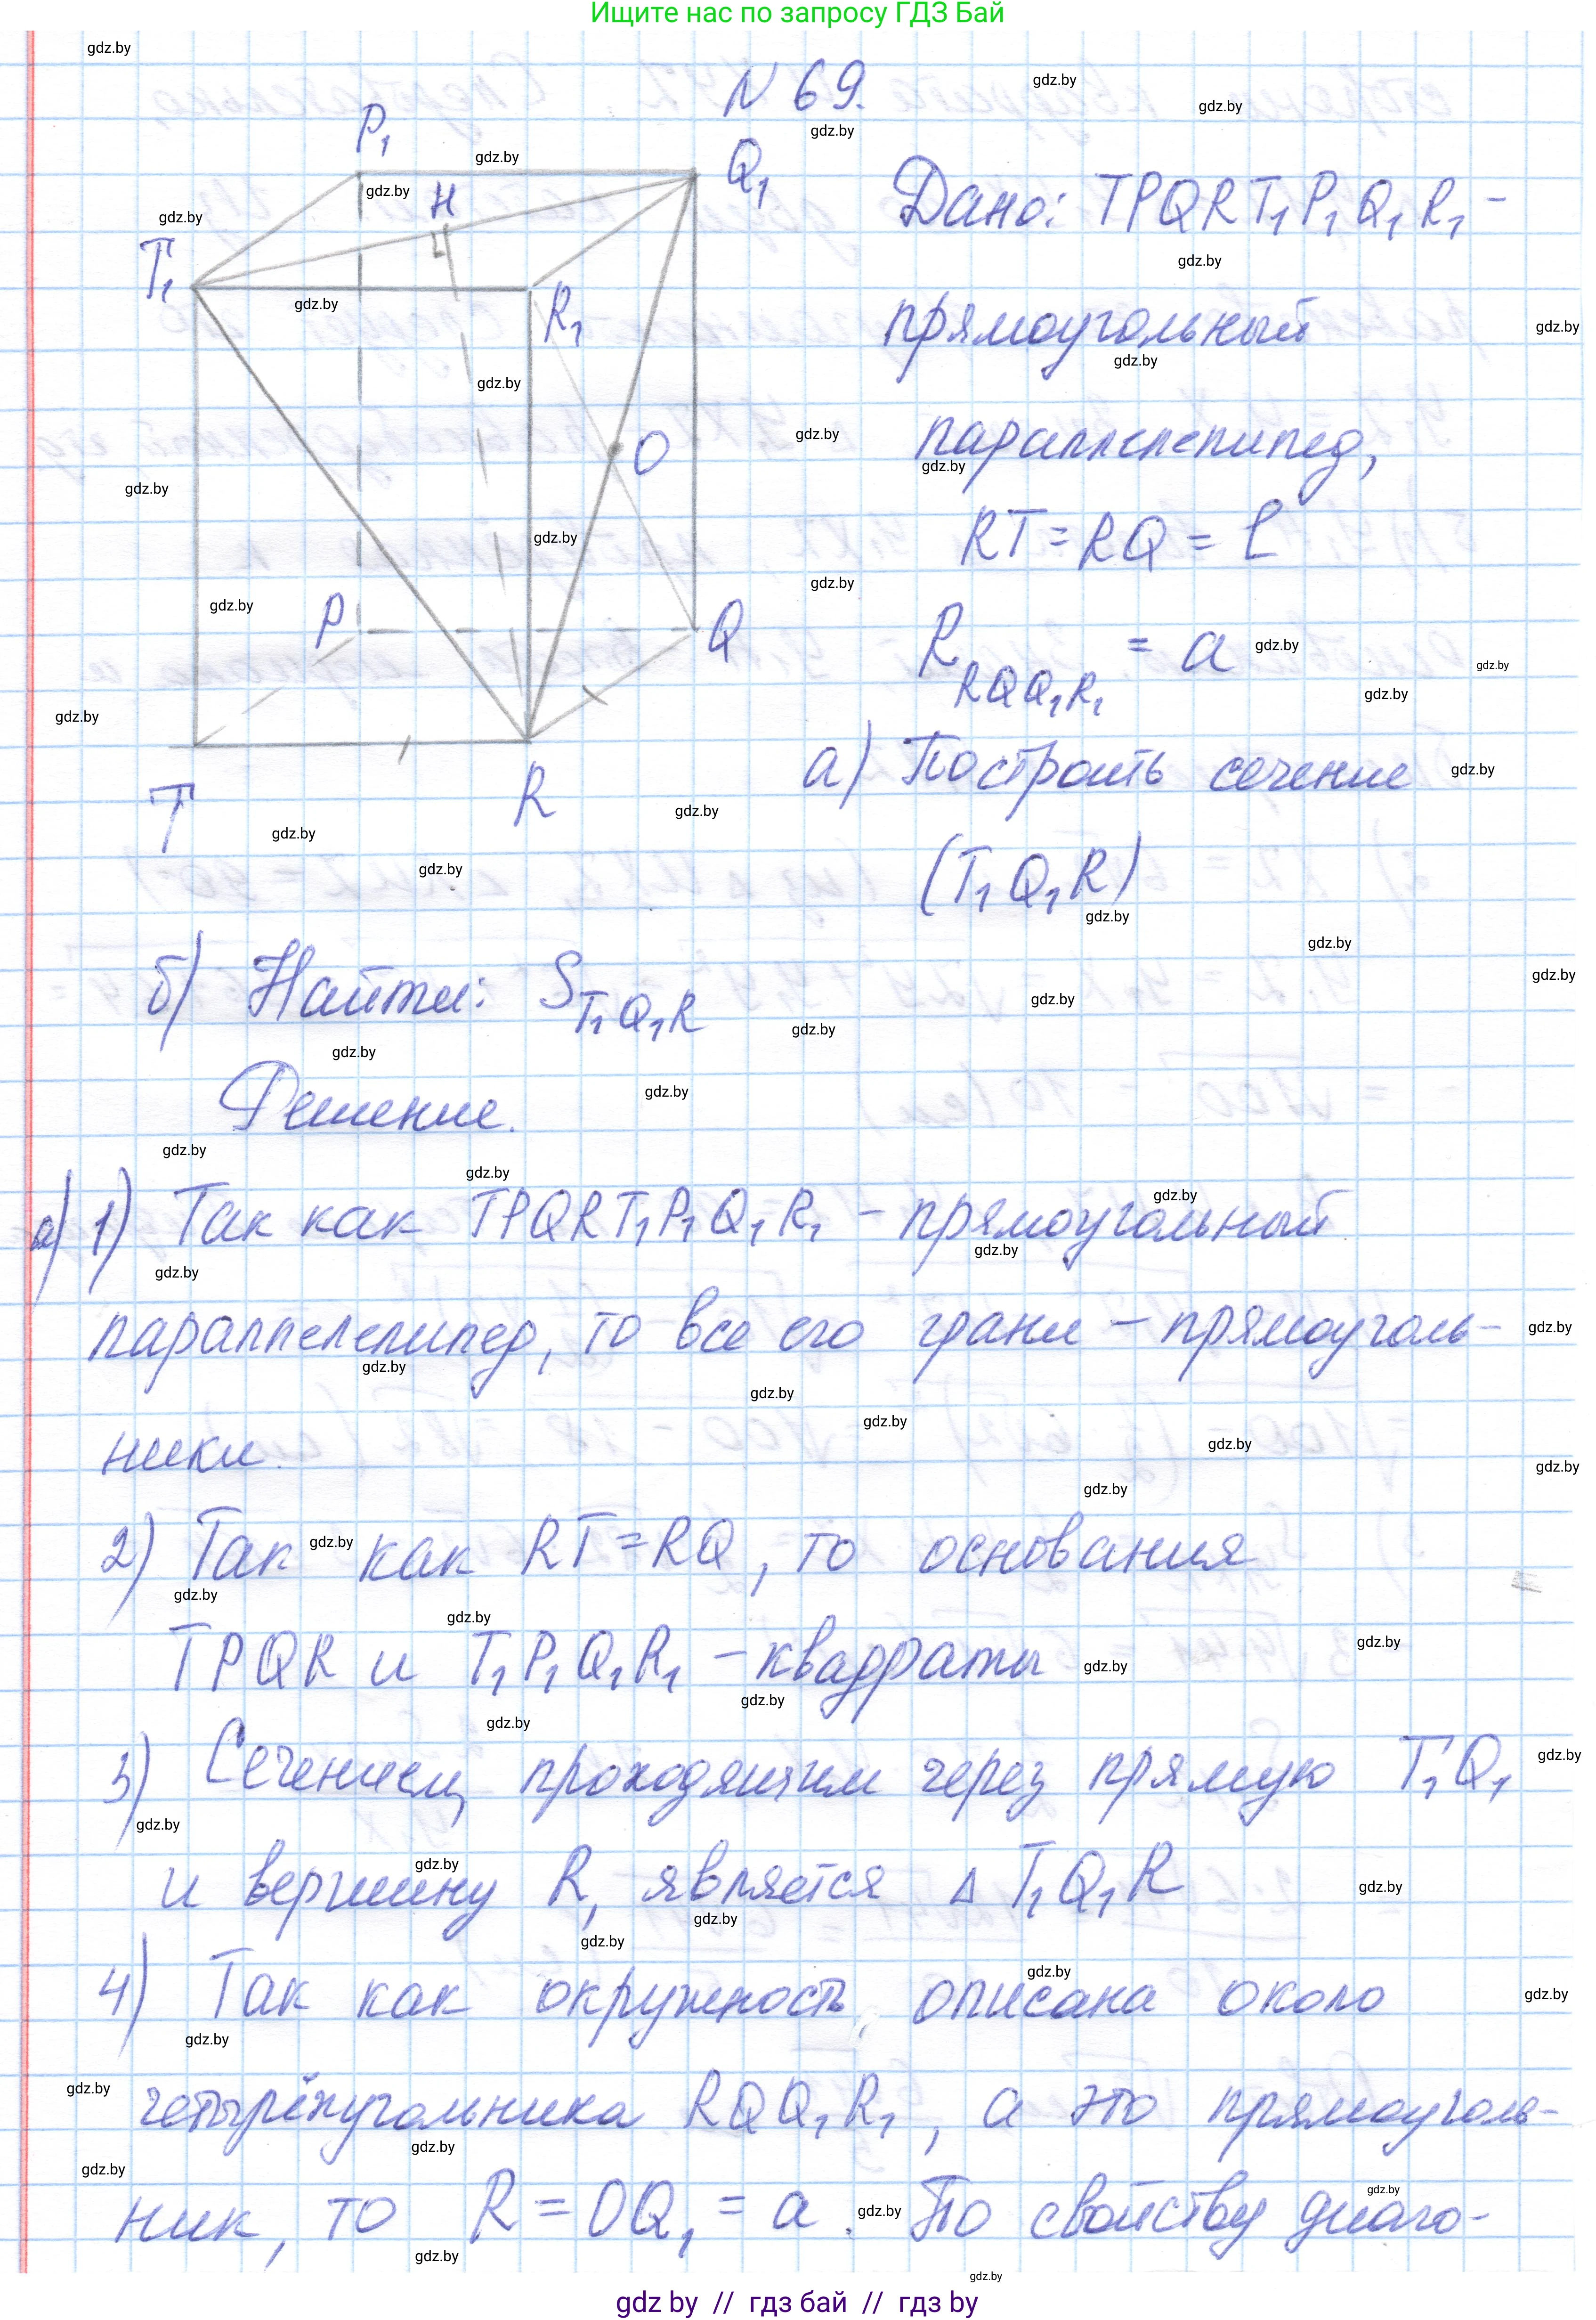 Ищите нас по запросу ГДЗ Бай
N 69.
P₁
H
Q₁
T₁
R₁
O
P
Q
T
R
Дано: TPQRT₁P₁Q₁R₁ -
прямоугольный
параллелепипед,
RT = RQ = b
R RQQ₁R₁ = a
а) Построить сечение
(T₁Q₁R)
б) Найти: S T₁Q₁R
Решение.
а) 1) Так как TPQRT₁P₁Q₁R₁ - прямоугольный
параллелепипед, то все его грани - прямоуголь-
ники.
2) Так как RT = RQ, то основания
TPQR и T₁P₁Q₁R₁ - квадраты
3) Сечением, проходящим через прямую T₁Q₁
и вершину R, является Δ T₁Q₁R
4) Так как окружность описана около
четырёхугольника RQQ₁R₁, а это прямоуголь-
ник, то R = OQ₁ = a. По свойству диаго-
gdz.by
gdz by // гдз бай // гдз by